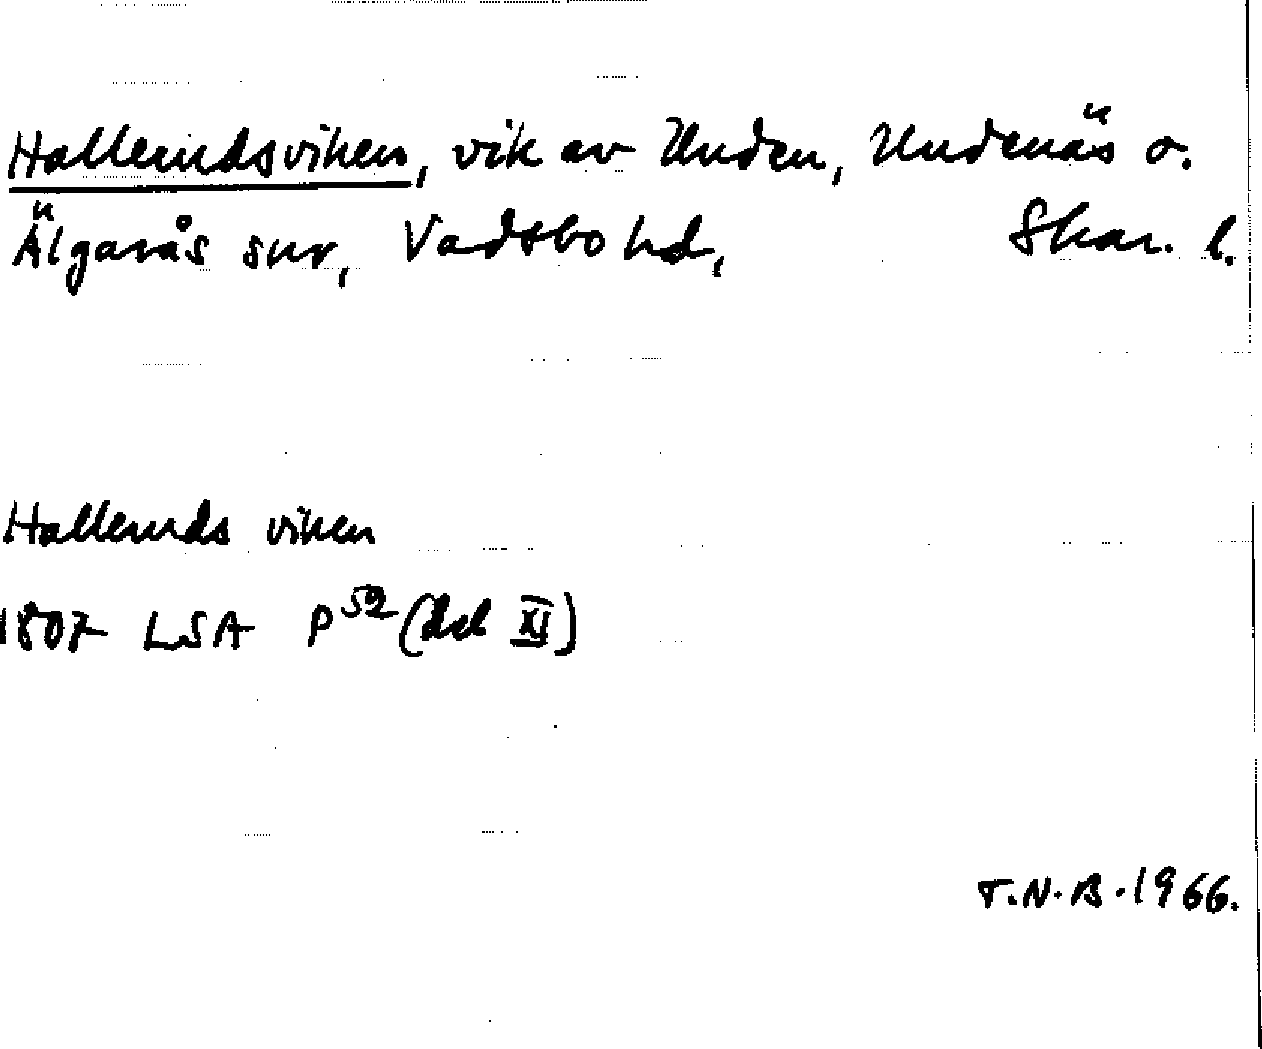 Hallerudsviken, vik av Unden, Undenäs o.
Älgarås snr, Vadsbo hd, Skar. l.
Halleruds viken
1807 LSA P52 (del XI)
T.N.B. 1966.